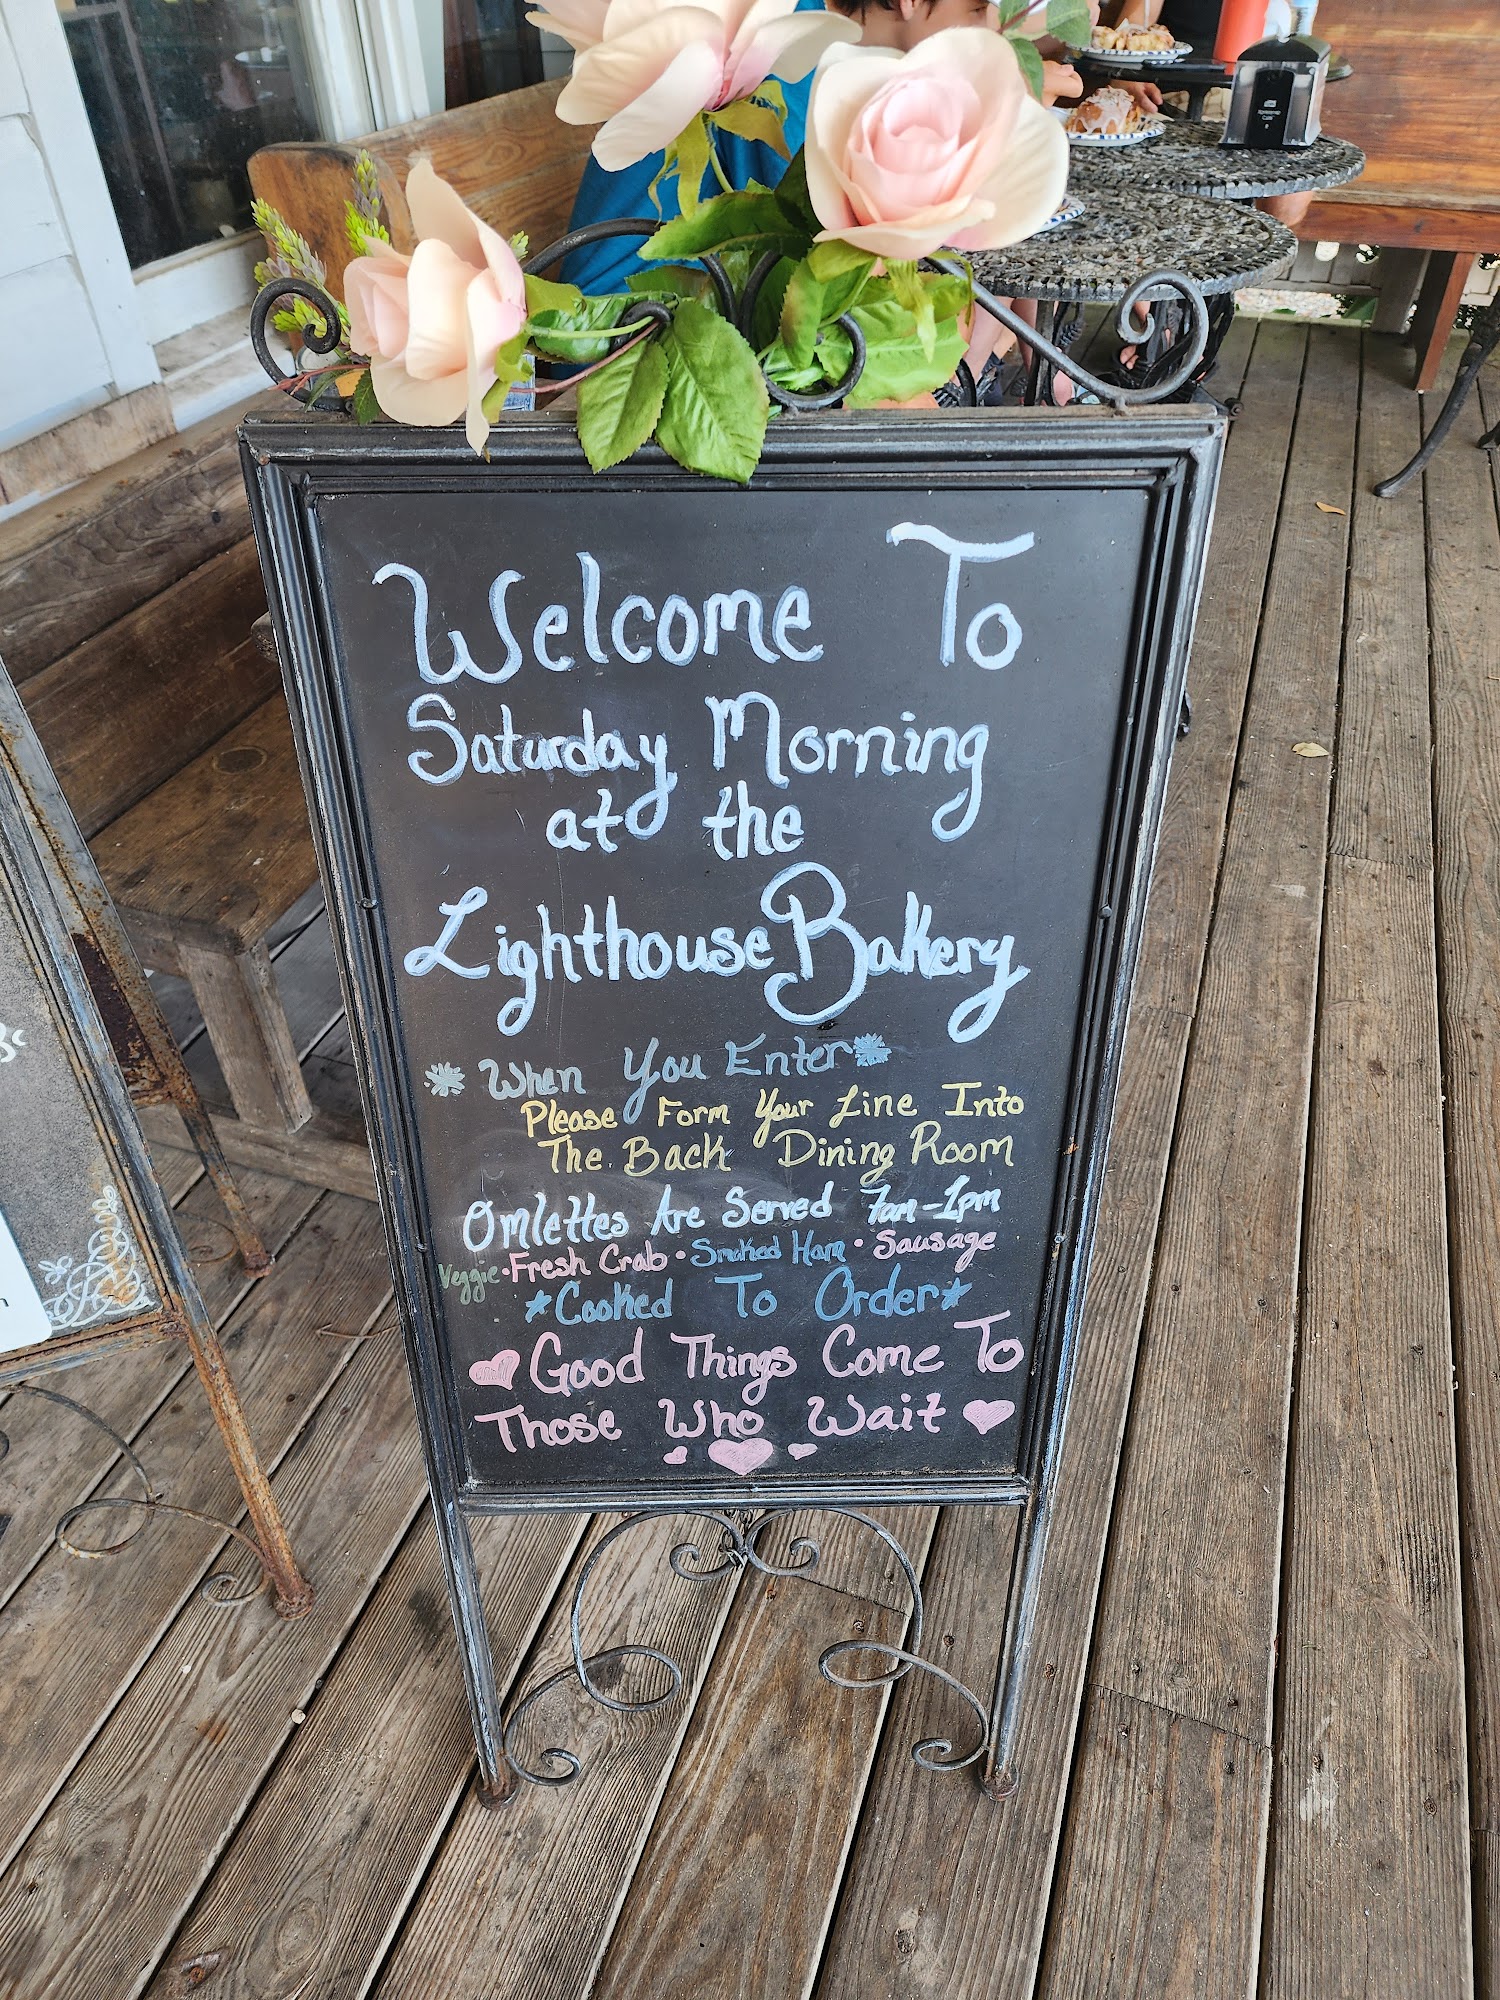 Welcome To
Saturday Morning
at the
Lighthouse Bakery
When You Enter
Please Form Your Line Into
The Back Dining Room
Omlettes Are Served 7am-1pm
Veggie • Fresh Crab • Smoked Ham • Sausage
*Cooked To Order*
Good Things Come To
Those Who Wait